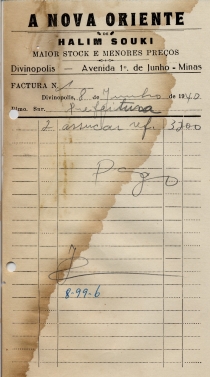 A NOVA ORIENTE
DE
HALIM SOUKI
MAIOR STOCK E MENORES PREÇOS
Divinopolis — Avenida 1º. de Junho - Minas
FACTURA N.
Divinopolis, 8 de Junho de 1940.
Ilmo. Snr. Prefeitura
2 assucar ref. 3200
Pago
8-99-6